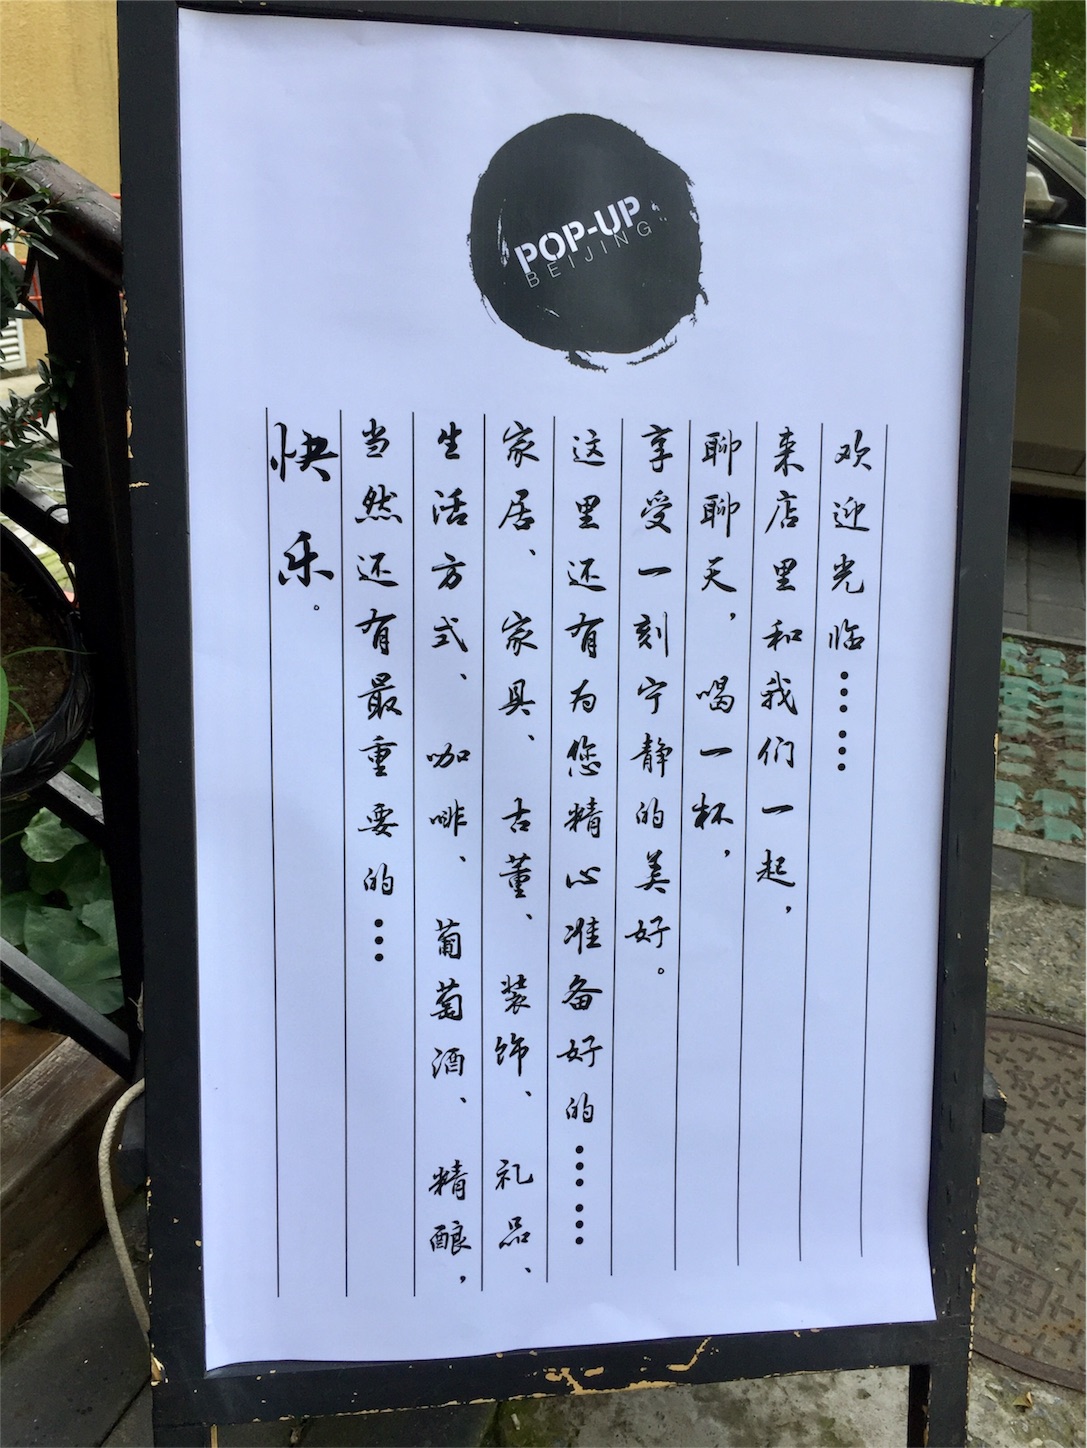 POP-UP
BEIJING
欢迎光临……
来店里和我们一起，
聊聊天，喝一杯，
享受一刻宁静的美好。
这里还有为您精心准备好的……
家居、家具、古董、装饰、礼品、
生活方式、咖啡、葡萄酒、精酿，
当然还有最重要的…
快乐。